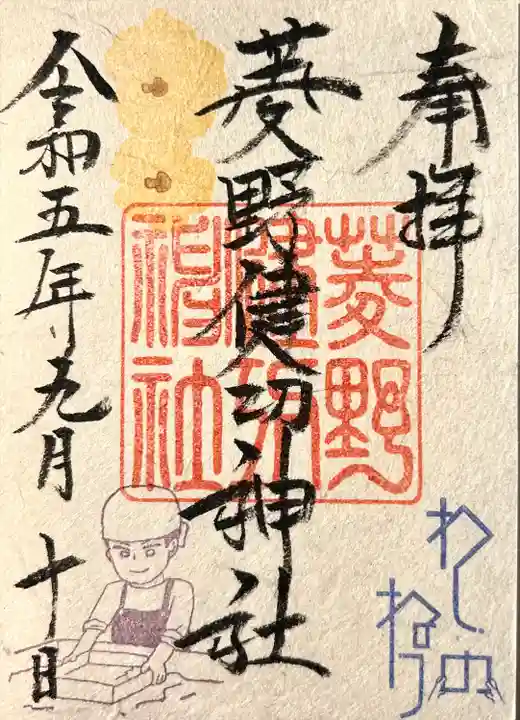 奉拝
菱野健功神社
菱野健功神社
令和五年九月十日
わしのねり